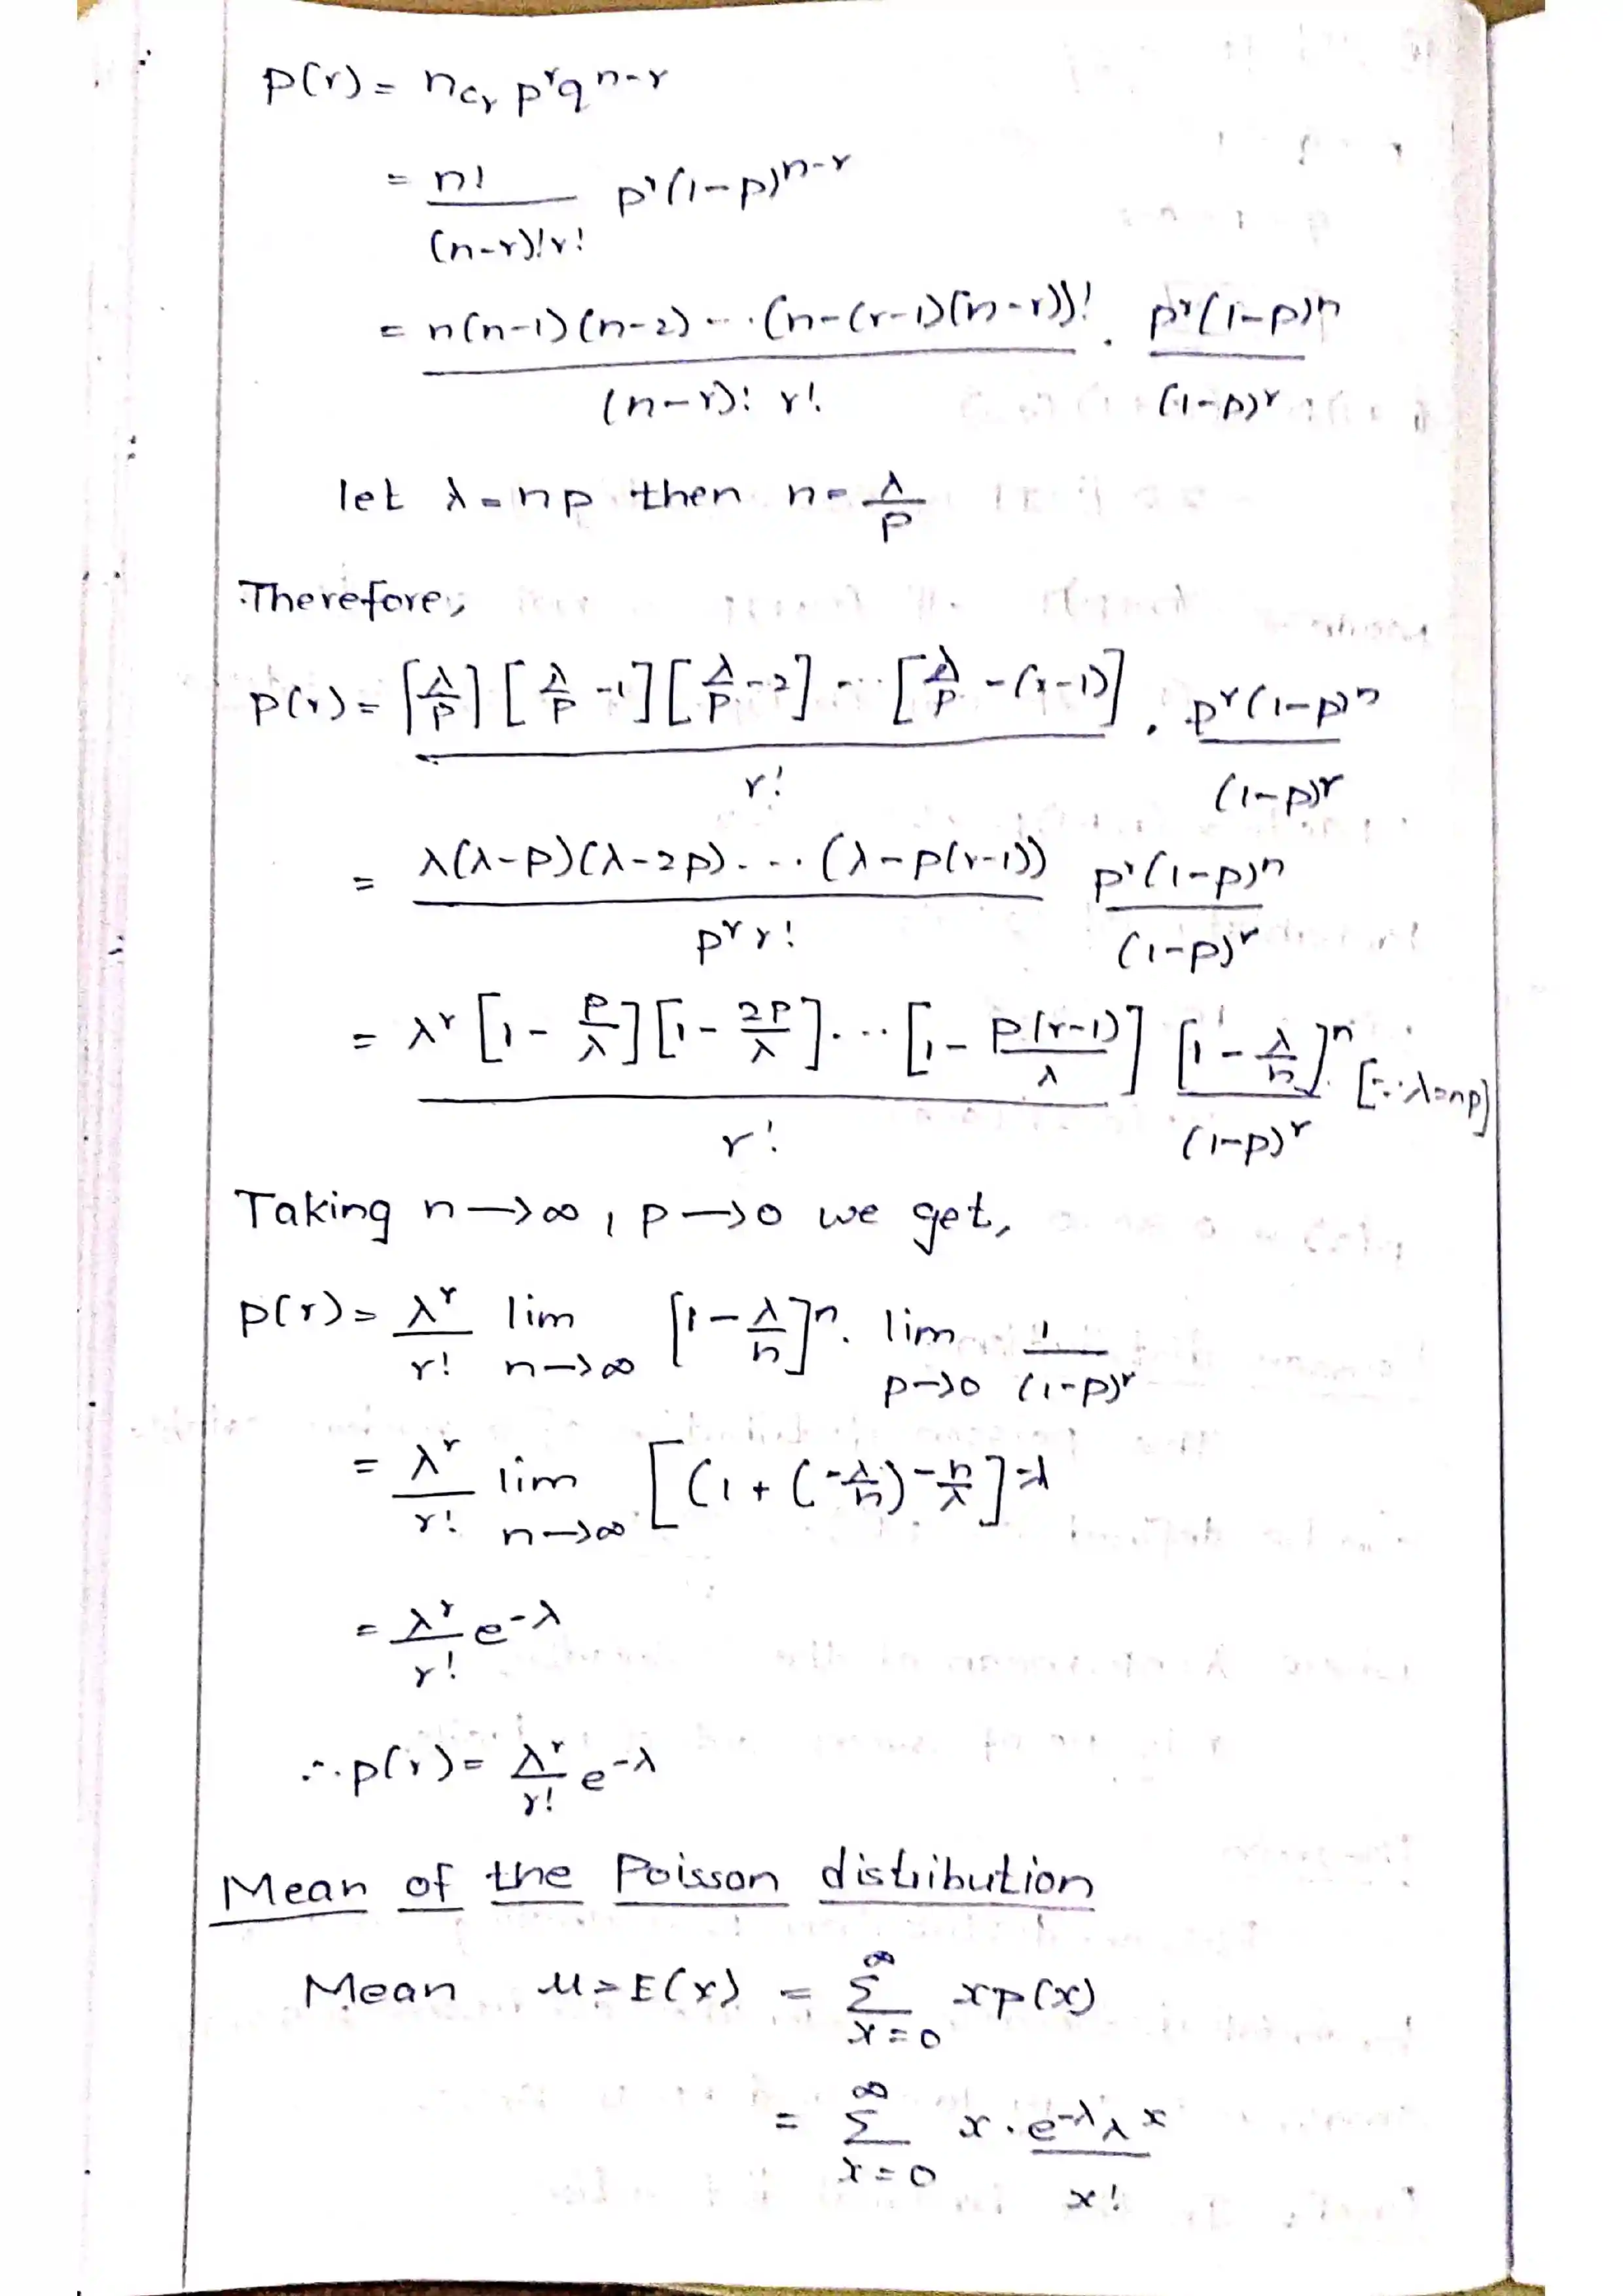 p(r) = nCr p^r q^n-r
= n! / (n-r)!r! p^r(1-p)^n-r
= n(n-1)(n-2)...(n-(r-1)(n-r))! / (n-r)! r! . p^r(1-p)^n / (1-p)^r
let λ=np then n=λ/p
Therefore,
p(r) = [λ/p][λ/p -1][λ/p -2]...[λ/p -(r-1)] / r! . p^r(1-p)^n / (1-p)^r
= λ(λ-p)(λ-2p)....(λ-p(r-1)) / p^r r! p^r(1-p)^n / (1-p)^r
= λ^r [1- p/λ][1- 2p/λ]....[1- p(r-1)/λ] / r! [1- λ/n]^n / (1-p)^r [∵λ=np]
Taking n→∞, p→0 we get,
p(r) = λ^r/r! lim n→∞ [1- λ/n]^n. lim p→0 1/(1-p)^r
= λ^r/r! lim n→∞ [(1+(-λ/n)^-n/λ]^-λ
= λ^r/r! e^-λ
∴p(r) = λ^r/r! e^-λ
Mean of the Poisson distribution
Mean μ=E(x) = ∞ Σ x=0 xp(x)
= ∞ Σ x=0 x.e^-λ λ^x / x!